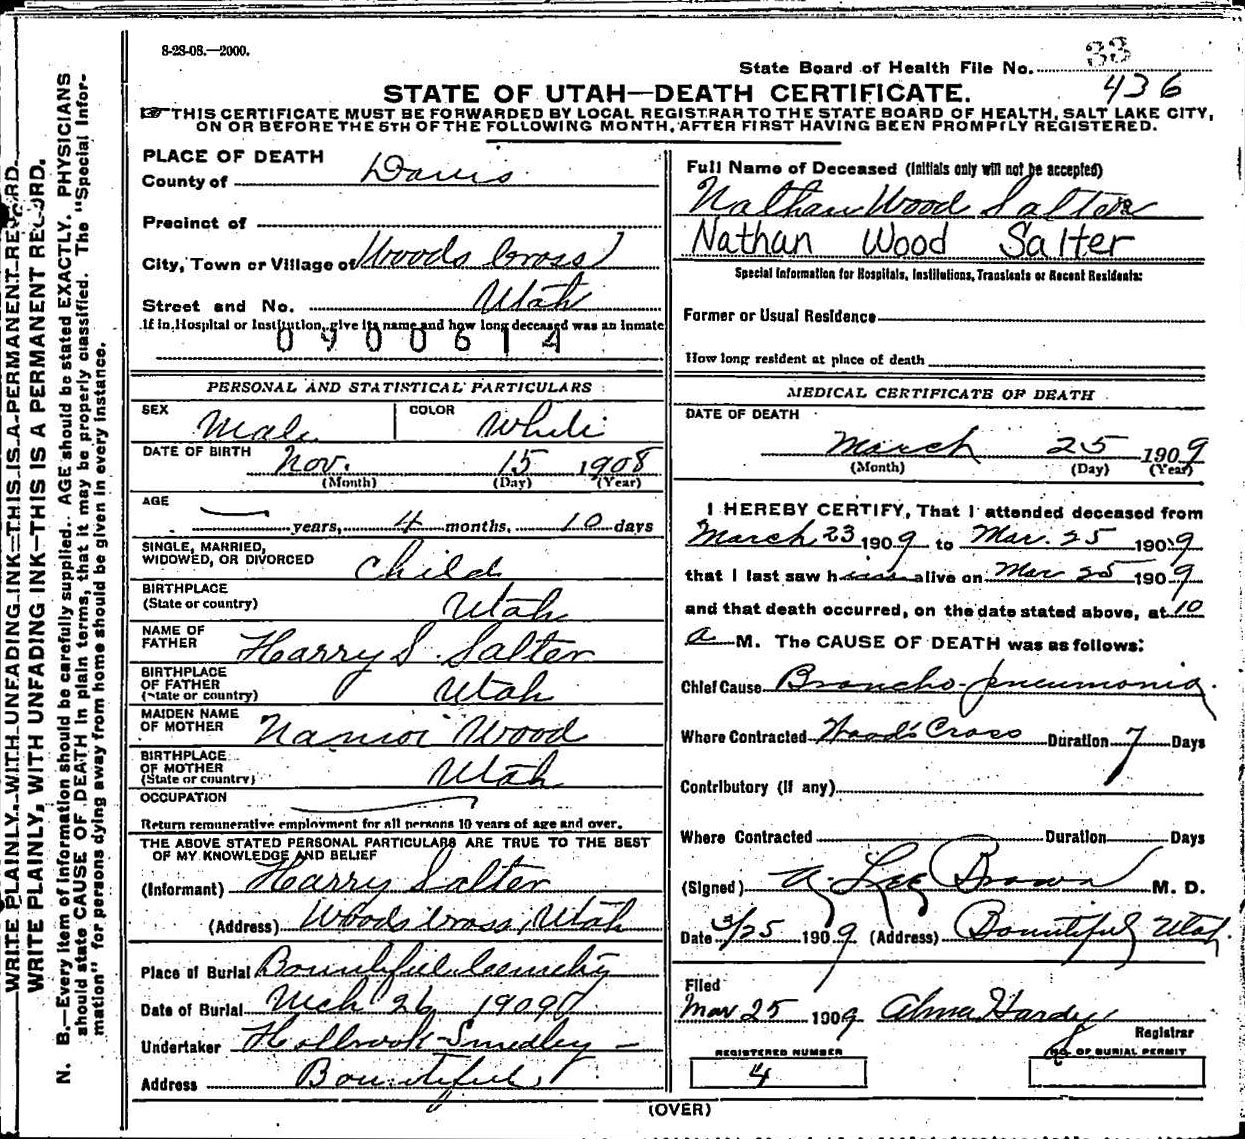 8-28-08.—2000.
33
State Board of Health File No.
436
STATE OF UTAH—DEATH CERTIFICATE.
THIS CERTIFICATE MUST BE FORWARDED BY LOCAL REGISTRAR TO THE STATE BOARD OF HEALTH, SALT LAKE CITY,
ON OR BEFORE THE 5TH OF THE FOLLOWING MONTH, AFTER FIRST HAVING BEEN PROMPTLY REGISTERED.
WRITE PLAINLY, WITH UNFADING INK—THIS IS A PERMANENT RECORD.
WRITE PLAINLY, WITH UNFADING INK—THIS IS A PERMANENT RECORD.
N. B.—Every item of information should be carefully supplied. AGE should be stated EXACTLY. PHYSICIANS
should state CAUSE OF DEATH in plain terms, that it may be properly classified. The "Special Infor-
mation" for persons dying away from home should be given in every instance.
PLACE OF DEATH
County of Davis
Precinct of
City, Town or Village of Woods Cross
Street and No. Utah
If in Hospital or Institution, give its name and how long deceased was an inmate
0900614
PERSONAL AND STATISTICAL PARTICULARS
SEX Male COLOR White
DATE OF BIRTH Nov. 15 1908
(Month) (Day) (Year)
AGE
years, 4 months, 10 days
SINGLE, MARRIED,
WIDOWED, OR DIVORCED Child
BIRTHPLACE
(State or country) Utah
NAME OF
FATHER Harry S. Salter
BIRTHPLACE
OF FATHER
(State or country) Utah
MAIDEN NAME
OF MOTHER Namoi Wood
BIRTHPLACE
OF MOTHER
(State or country) Utah
OCCUPATION
Return remunerative employment for all persons 10 years of age and over.
THE ABOVE STATED PERSONAL PARTICULARS ARE TRUE TO THE BEST
OF MY KNOWLEDGE AND BELIEF
(Informant) Harry Salter
(Address) Woods Cross, Utah
Place of Burial Bountiful Cemetery
Date of Burial Mch 26 1909
Undertaker Holbrook-Smedley
Address Bountiful
Full Name of Deceased (Initials only will not be accepted)
Nathan Wood Salter
Nathan Wood Salter
Special Information for Hospitals, Institutions, Transients or Recent Residents:
Former or Usual Residence
How long resident at place of death
MEDICAL CERTIFICATE OF DEATH
DATE OF DEATH
March 25 1909
(Month) (Day) (Year)
I HEREBY CERTIFY, That I attended deceased from
March 23 1909 to Mar. 25 1909
that I last saw him alive on Mar 25 1909
and that death occurred, on the date stated above, at 10
a M. The CAUSE OF DEATH was as follows:
Chief Cause Broncho-pneumonia.
Where Contracted Woods Cross Duration 7 Days
Contributory (If any)
Where Contracted Duration Days
(Signed) Lee Brown M. D.
Date 3/25 1909 (Address) Bountiful Utah.
Filed
Mar 25 1909 Alma Hardy
Registrar
REGISTERED NUMBER
4
NO. OF BURIAL PERMIT
(OVER)